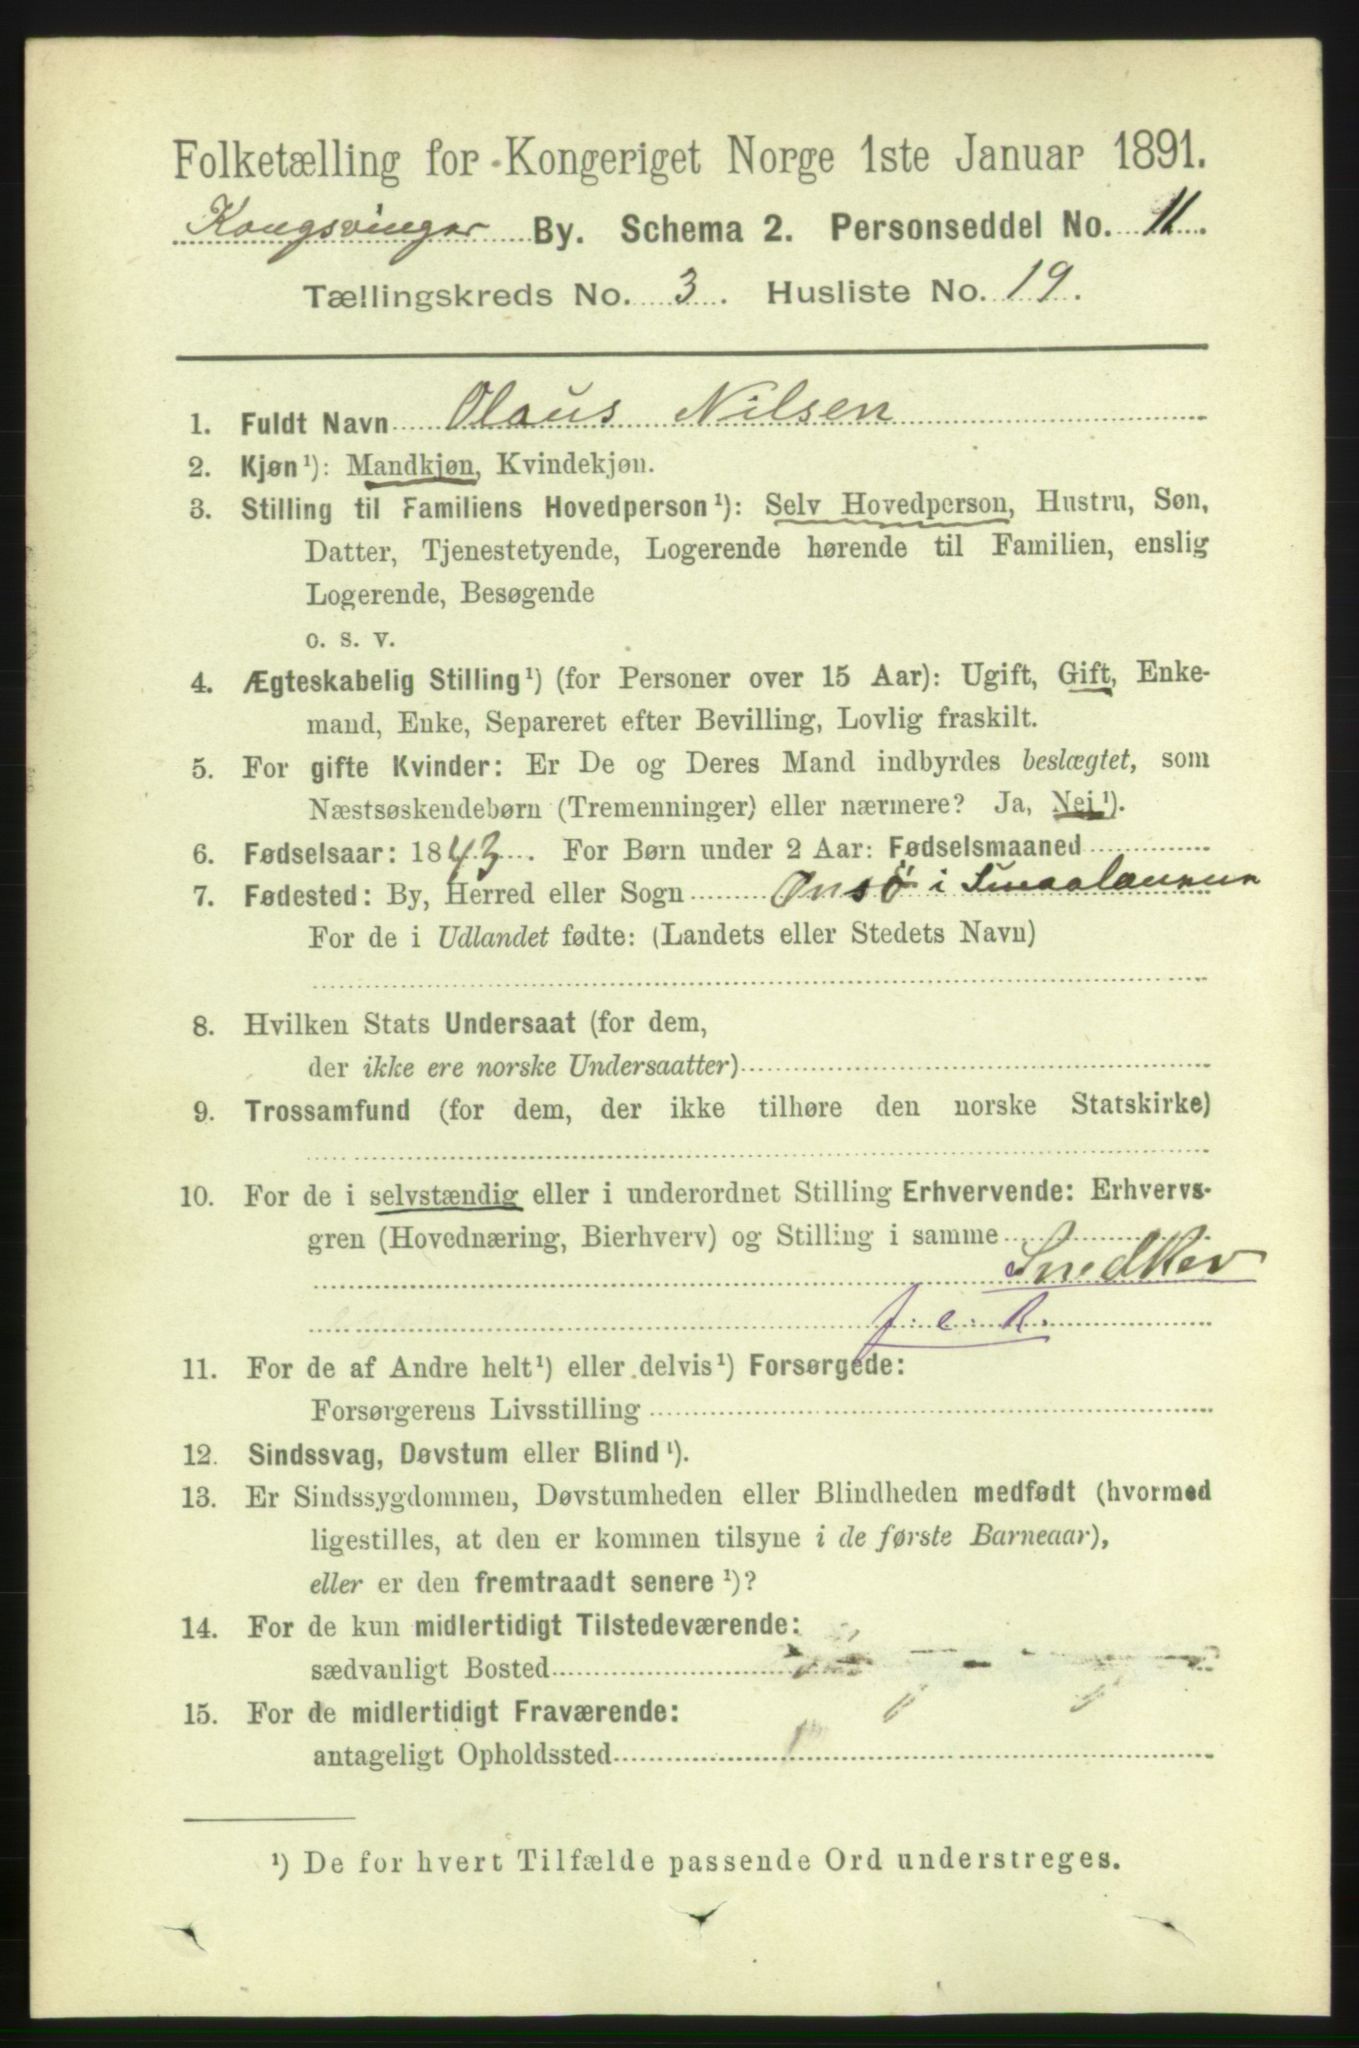 Folketælling for Kongeriget Norge 1ste Januar 1891.
Kongsvinger By. Schema 2. Personseddel No. 11.
Tællingskreds No. 3. Husliste No. 19.
1. Fuldt Navn Olaus Nilsen
2. Kjøn¹): Mandkjøn, Kvindekjøn.
3. Stilling til Familiens Hovedperson¹): Selv Hovedperson, Hustru, Søn,
Datter, Tjenestetyende, Logerende hørende til Familien, enslig
Logerende, Besøgende
o. s. v.
4. Ægteskabelig Stilling¹) (for Personer over 15 Aar): Ugift, Gift, Enke-
mand, Enke, Separeret efter Bevilling, Lovlig fraskilt.
5. For gifte Kvinder: Er De og Deres Mand indbyrdes beslægtet, som
Næstsøskendebørn (Tremenninger) eller nærmere? Ja, Nei¹).
6. Fødselsaar: 1843. For Børn under 2 Aar: Fødselsmaaned
7. Fødested: By, Herred eller Sogn Onsö i Smaalenene
For de i Udlandet fødte: (Landets eller Stedets Navn)
8. Hvilken Stats Undersaat (for dem,
der ikke ere norske Undersaatter)
9. Trossamfund (for dem, der ikke tilhøre den norske Statskirke)
10. For de i selvstændig eller i underordnet Stilling Erhvervende: Erhvervs-
gren (Hovednæring, Bierhverv) og Stilling i samme
Snedker
f. e. R.
11. For de af Andre helt¹) eller delvis¹) Forsørgede:
Forsørgerens Livsstilling
12. Sindssvag, Døvstum eller Blind¹).
13. Er Sindssygdommen, Døvstumheden eller Blindheden medfødt (hvormed
ligestilles, at den er kommen tilsyne i de første Barneaar),
eller er den fremtraadt senere¹)?
14. For de kun midlertidigt Tilstedeværende:
sædvanligt Bosted
15. For de midlertidigt Fraværende:
antageligt Opholdssted
¹) De for hvert Tilfælde passende Ord understreges.